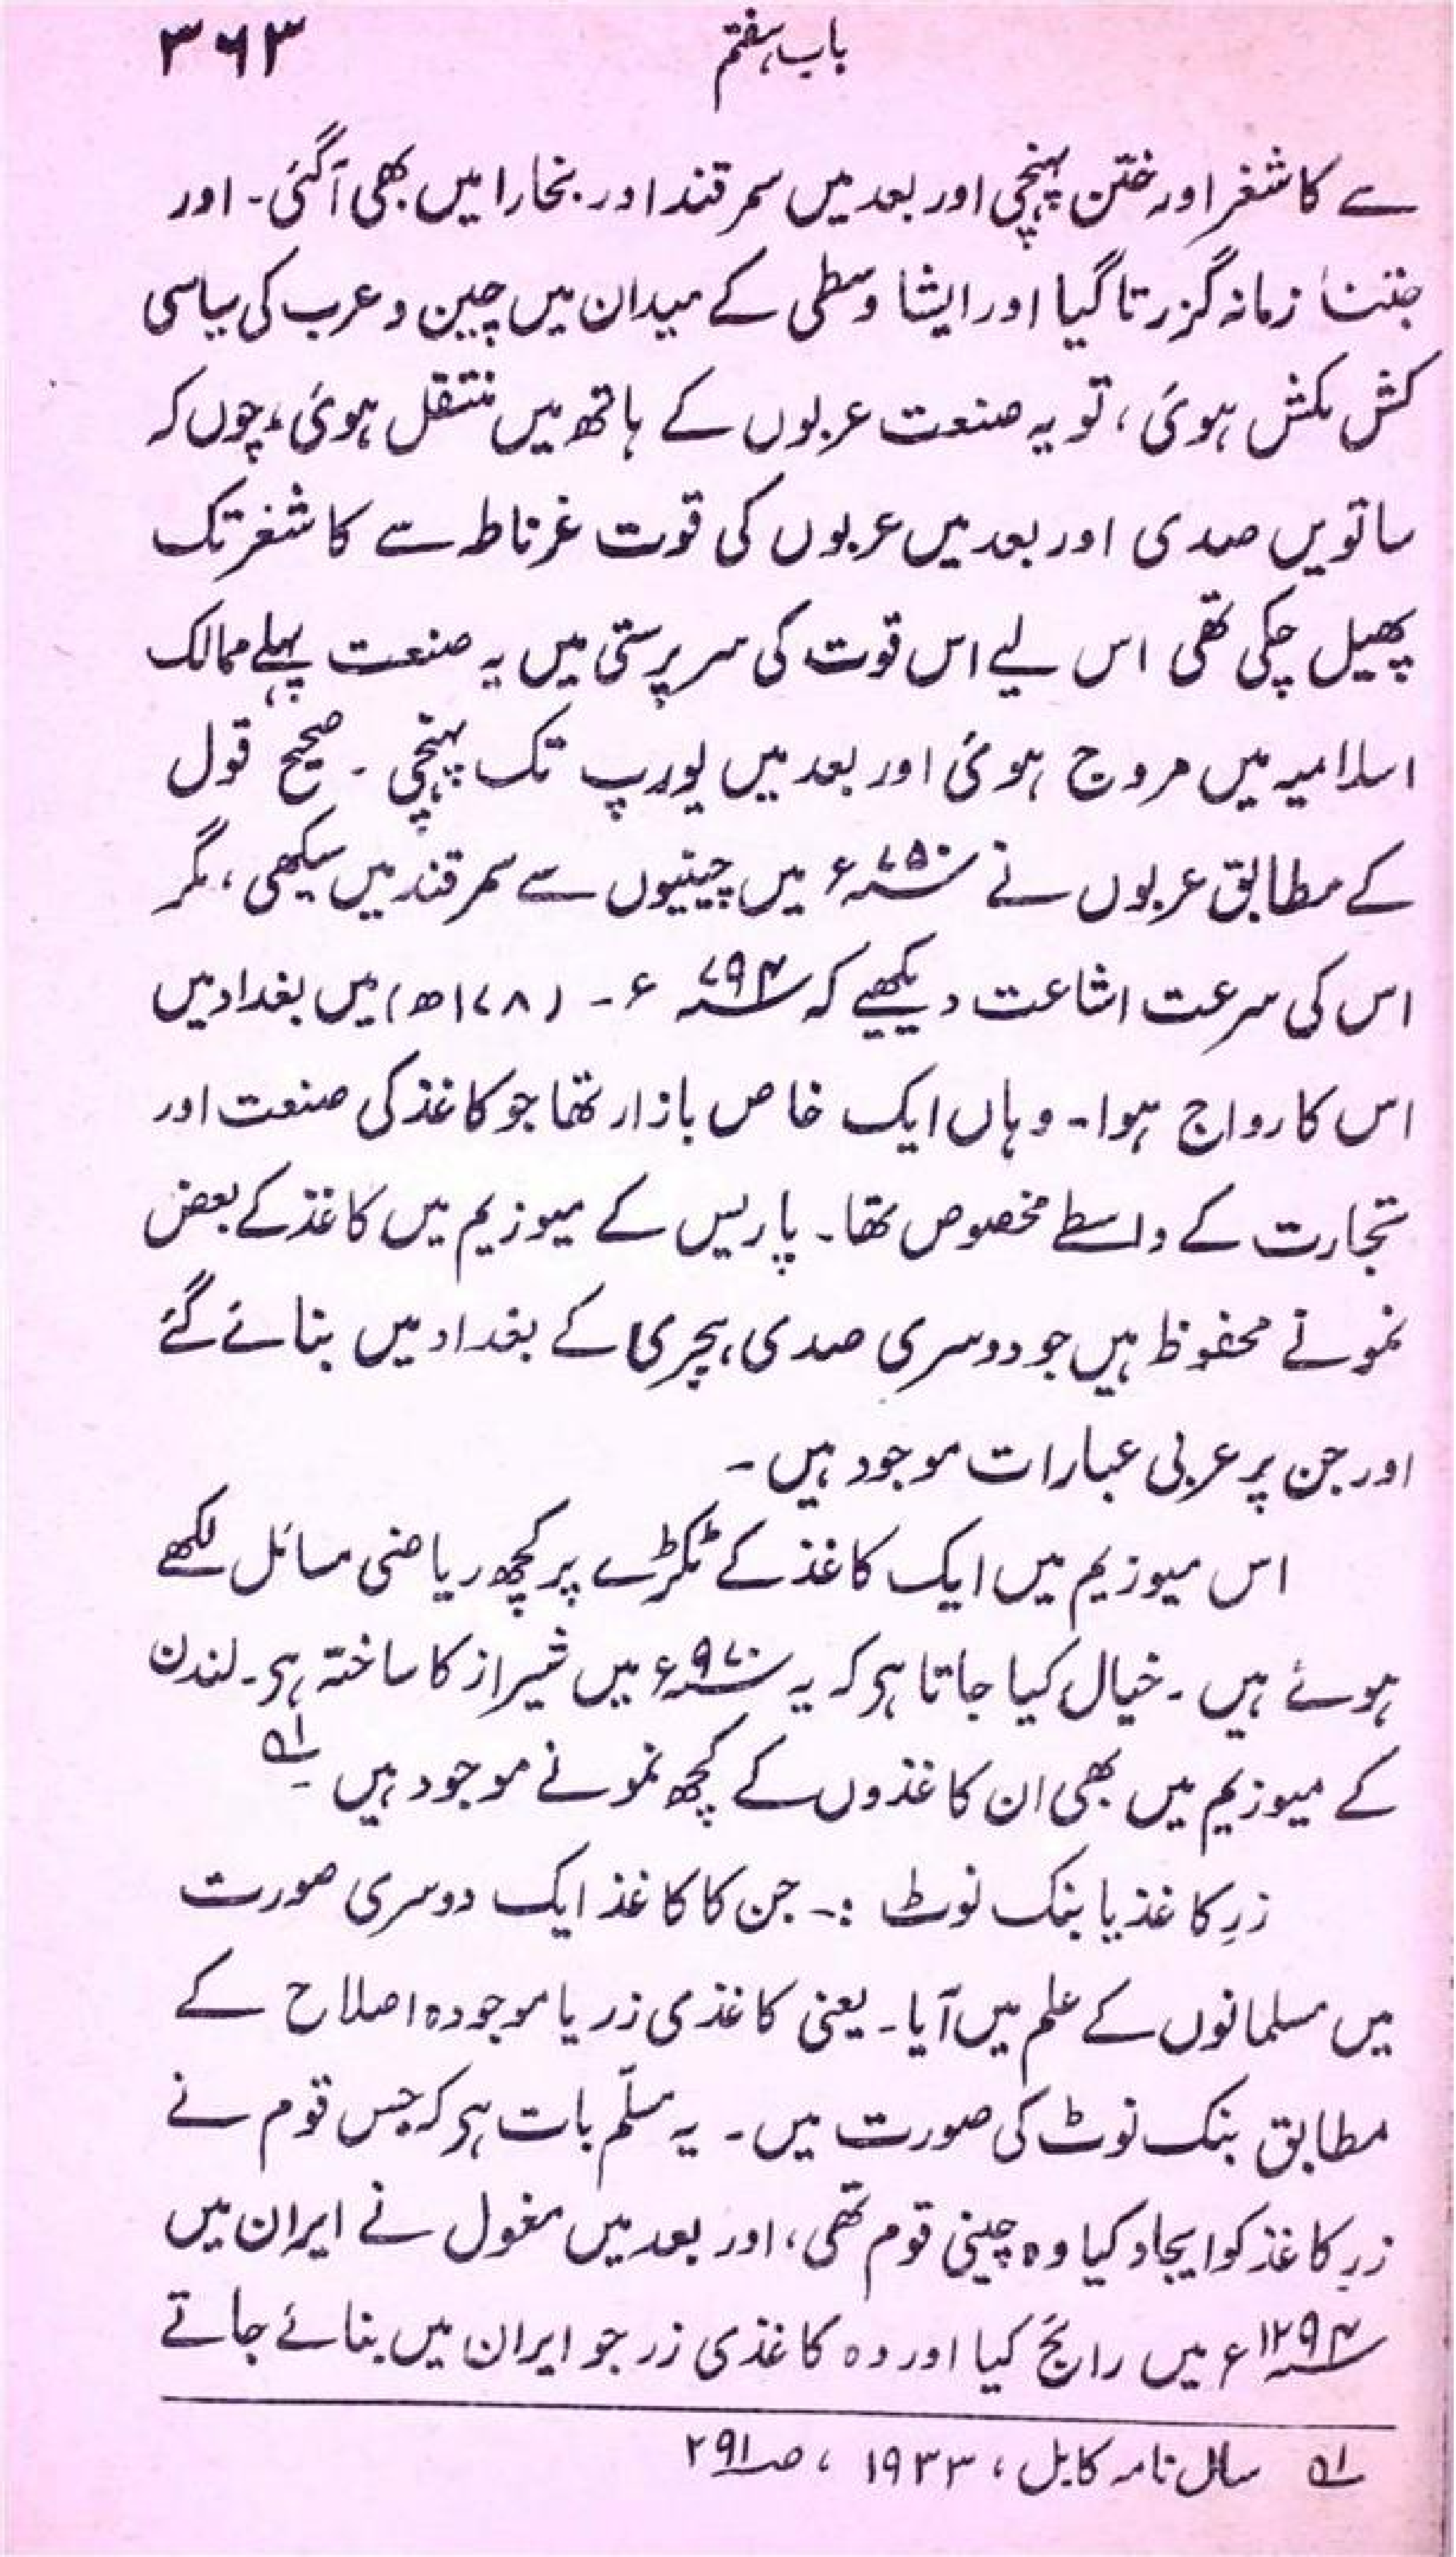 باب ہفتم ۳۶۳
سے کاشغر اور ختن پہنچی اور بعد میں سمرقند اور بخارا میں بھی آگئی۔ اور
جتنا زمانہ گزرتا گیا اور ایشا وسطی کے میدان میں چین و عرب کی سیاسی
کش مکش ہوئی، تو یہ صنعت عربوں کے ہاتھ میں منتقل ہوئی، چوں کہ
ساتویں صدی اور بعد میں عربوں کی قوت غرناطہ سے کاشغر تک
پھیل چکی تھی اس لیے اس قوت کی سرپرستی میں یہ صنعت پہلے ممالک
اسلامیہ میں مروج ہوئی اور بعد میں یورپ تک پہنچی۔ صحیح قول
کے مطابق عربوں نے ۷۵۰ء میں چینیوں سے سمرقند میں سیکھی، مگر
اس کی سرعت اشاعت دیکھیے کہ ۷۹۴ء۔ (۱۷۸ھ) میں بغداد میں
اس کا رواج ہوا۔ وہاں ایک خاص بازار تھا جو کاغذ کی صنعت اور
تجارت کے واسطے مخصوص تھا۔ پاریس کے میوزیم میں کاغذ کے بعض
نمونے محفوظ ہیں جو دوسری صدی ہجری کے بغداد میں بنائے گئے
اور جن پر عربی عبارات موجود ہیں۔
اس میوزیم میں ایک کاغذ کے ٹکڑے پر کچھ ریاضی مسائل لکھے
ہوئے ہیں۔ خیال کیا جاتا ہر کہ یہ ۹۷۰ء میں شیراز کا ساختہ ہر۔ لندن
کے میوزیم میں بھی ان کاغذوں کے کچھ نمونے موجود ہیں ۱؎
زرِ کاغذ یا بنک نوٹ :۔ جن کا کاغذ ایک دوسری صورت
میں مسلمانوں کے علم میں آیا۔ یعنی کاغذی زر یا موجودہ اصلاح کے
مطابق بنک نوٹ کی صورت میں۔ یہ مسلّم بات ہر کہ جس قوم نے
زرِ کاغذ کو ایجاد کیا وہ چینی قوم تھی، اور بعد میں مغول نے ایران میں
۱۲۹۴ء میں رائج کیا اور وہ کاغذی زر جو ایران میں بنائے جاتے
۱؎ سال نامہ کابل، ۱۹۳۳، صـ ۲۹۱